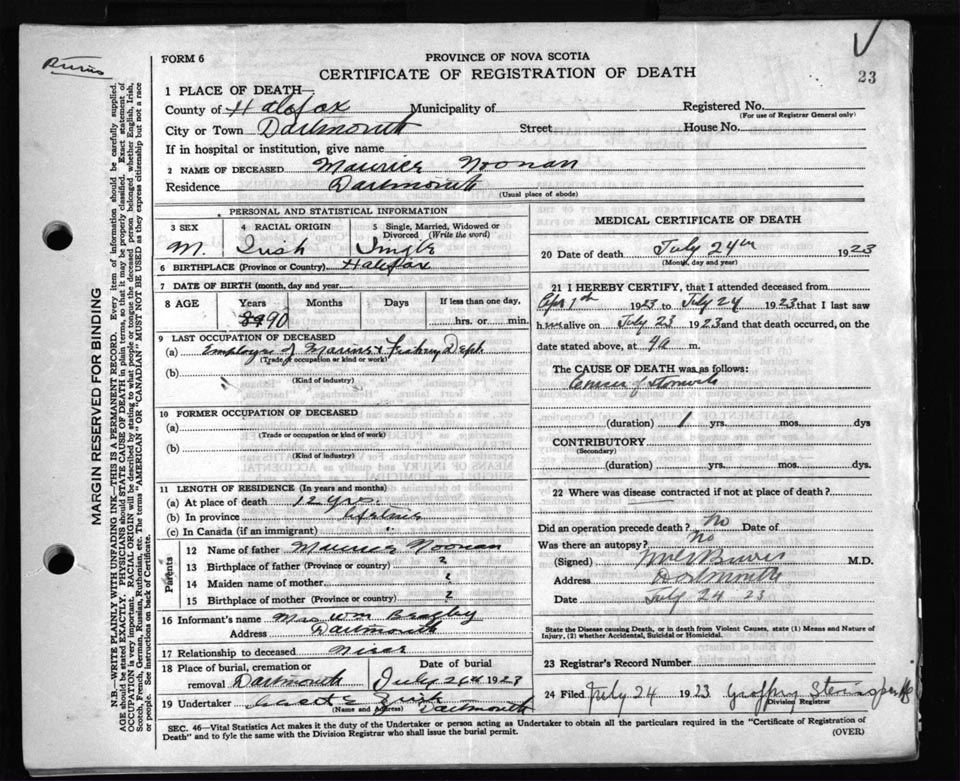 FORM 6
PROVINCE OF NOVA SCOTIA
CERTIFICATE OF REGISTRATION OF DEATH
23
1 PLACE OF DEATH—
County of Halifax Municipality of Registered No.
(For use of Registrar General only)
City or Town Dartmouth Street House No.
If in hospital or institution, give name
2 NAME OF DECEASED Maurice Noonan
Residence Dartmouth
(Usual place of abode)
PERSONAL AND STATISTICAL INFORMATION
3 SEX 4 RACIAL ORIGIN 5 Single, Married, Widowed or Divorced (Write the word)
M. Irish Single
6 BIRTHPLACE (Province or Country) Halifax
7 DATE OF BIRTH (month, day and year)
8 AGE Years Months Days If less than one day,
90 hrs. or min.
9 LAST OCCUPATION OF DECEASED
(a) Employee of Marine & Fishery Dept
(Trade or occupation or kind of work)
(b)
(Kind of industry)
10 FORMER OCCUPATION OF DECEASED
(a)
(Trade or occupation or kind of work)
(b)
(Kind of industry)
11 LENGTH OF RESIDENCE (In years and months)
(a) At place of death 12 yrs.
(b) In province
(c) In Canada (if an immigrant)
Parents
12 Name of father Maurice Noonan
13 Birthplace of father (Province or country) ?
14 Maiden name of mother ?
15 Birthplace of mother (Province or country) ?
16 Informant's name Mrs Wm
Address Dartmouth
17 Relationship to deceased Niece
18 Place of burial, cremation or removal Dartmouth Date of burial July 26th 1923
19 Undertaker
(Name and Address) Dartmouth
MEDICAL CERTIFICATE OF DEATH
20 Date of death July 24th 1923
(Month, day and year)
21 I HEREBY CERTIFY, that I attended deceased from
Apr 1st 1923 to July 24 1923 that I last saw
him alive on July 23 1923 and that death occurred, on
date stated above, at 9 a m.
The CAUSE OF DEATH was as follows:
Cancer of Stomach
(duration) 1 yrs. mos. dys
CONTRIBUTORY
(Secondary)
(duration) yrs. mos. dys.
22 Where was disease contracted if not at place of death?
Did an operation precede death? No Date of
Was there an autopsy? No
(Signed) M.D.
Address Dartmouth
Date July 24 23
State the Disease causing Death, or in death from Violent Causes, state (1) Means and Nature of
Injury, (2) whether Accidental, Suicidal or Homicidal.
23 Registrar's Record Number
24 Filed July 24 1923
Division Registrar
SEC. 46—Vital Statistics Act makes it the duty of the Undertaker or person acting as Undertaker to obtain all the particulars required in the "Certificate of Registration of
Death" and to fyle the same with the Division Registrar who shall issue the burial permit.
(OVER)
MARGIN RESERVED FOR BINDING
N.B.—WRITE PLAINLY WITH UNFADING INK—THIS IS A PERMANENT RECORD. Every item of information should be carefully supplied.
AGE should be stated EXACTLY. PHYSICIANS should STATE CAUSE OF DEATH in plain terms, so that it may be properly classified. Exact statement of
OCCUPATION is very important. RACIAL ORIGIN will be described by stating to what people or tongue the deceased person belonged whether English, Irish,
Scotch, French, German, Russian, Ruthenian, etc. The terms "AMERICAN" OR "CANADIAN" MUST NOT BE USED as they express citizenship but not a race
or people. See instructions on back of Certificate.